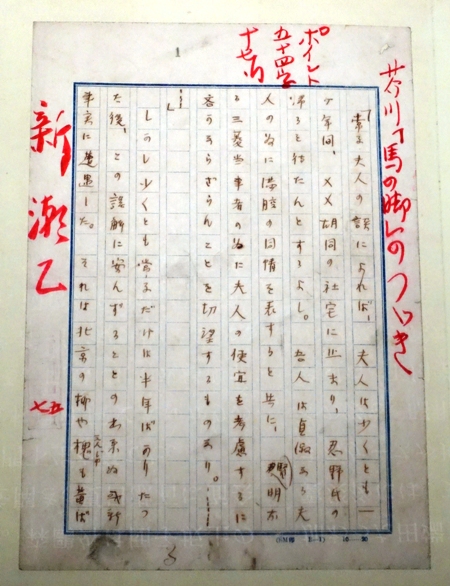 芥川「馬の脚」のつゞき
ポイント
五十四字
十七行
1
「常子夫人の談によれば、夫人は少くとも一
ケ年間、××胡同の社宅に止まり、忍野氏の
帰るを待たんとするよし。吾人は貞淑なる夫
人の為に満腔の同情を表すると共に、賢明な
る三菱当事者の為に夫人の便宜を考慮するに
吝かならざらんことを切望するものあり。……
…」
しかし少くとも常子だけは半年ばかりたつ
た後、この誤解に安んずることの出来ぬ或新
事実に遭遇した。それは北京の柳や槐も黄ば
えんじゆ
新潮乙
七五
10 20